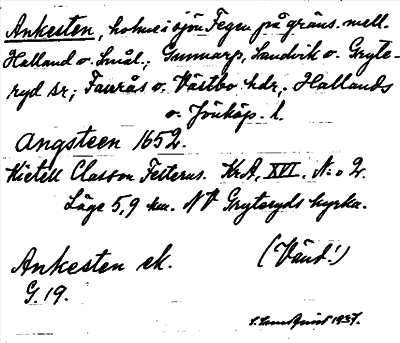 Ankesten, holme i sjön Fegen på gräns. mell.
Halland o. Smål.; Gunnarp, Sandvik o. Gryte-
ryd sr; Faurås o. Västbo hdr, Hallands
o. Jönköp. l.
Angsteen 1652.
Kietell Classon Felterus. KrA, XVI. N:o 2.
Läge 5,9 km. NV Gryteryds kyrka.
Ankesten ek. (Vänd!)
G. 19.
S. Lundquist 1937.